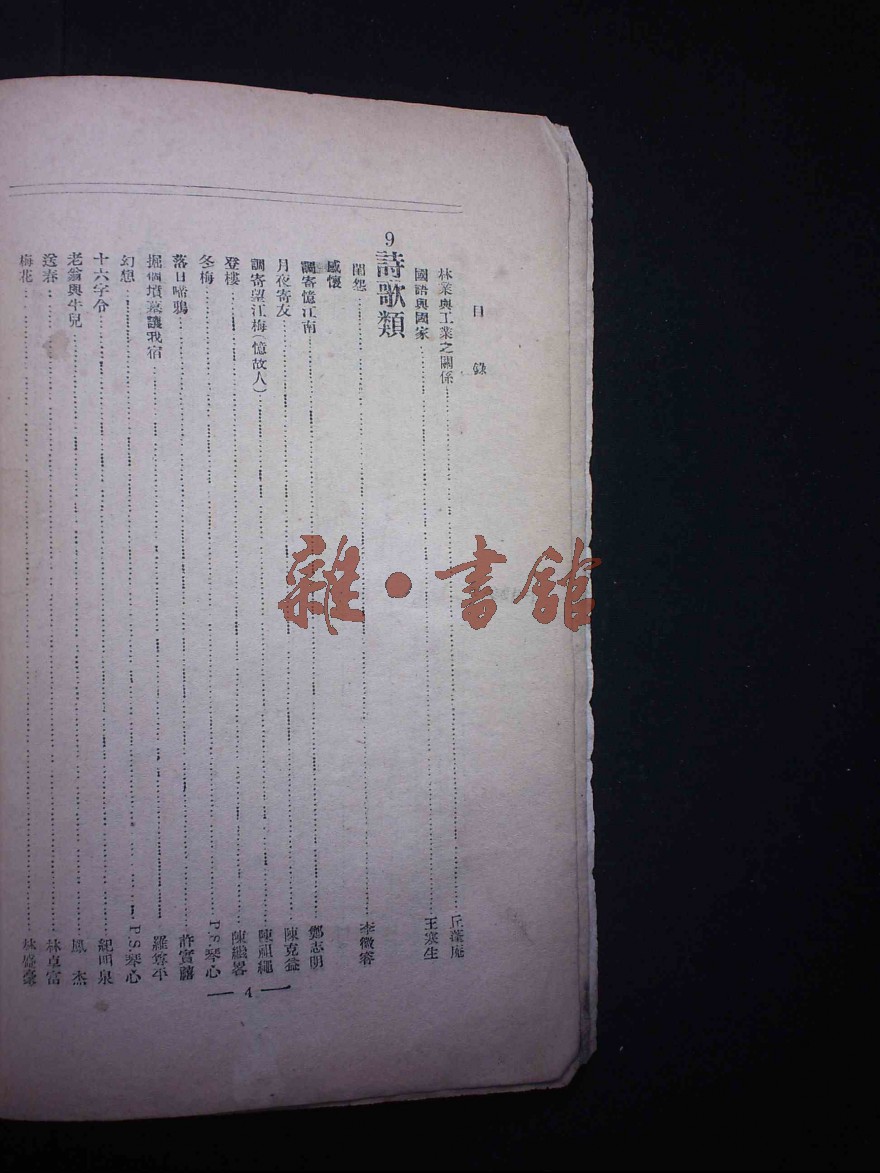 目錄
林業與工業之關係 丘菴
國語與國家 王寒生
9 詩歌類
閨怨 李徽容
感懷
調寄憶江南 鄭志明
月夜寄友 陳克益
調寄望江梅（憶故人） 陳祖繩
登樓 陳繼
冬梅 P.S.琴心
落日啼鴉 許實
掘個墳墓讓我宿 羅平
幻想 P.S.琴心
十六字令 紀四泉
老翁與牛兒 鳳杰
送春 林卓富
梅花 林
— 4 —
雜·書館